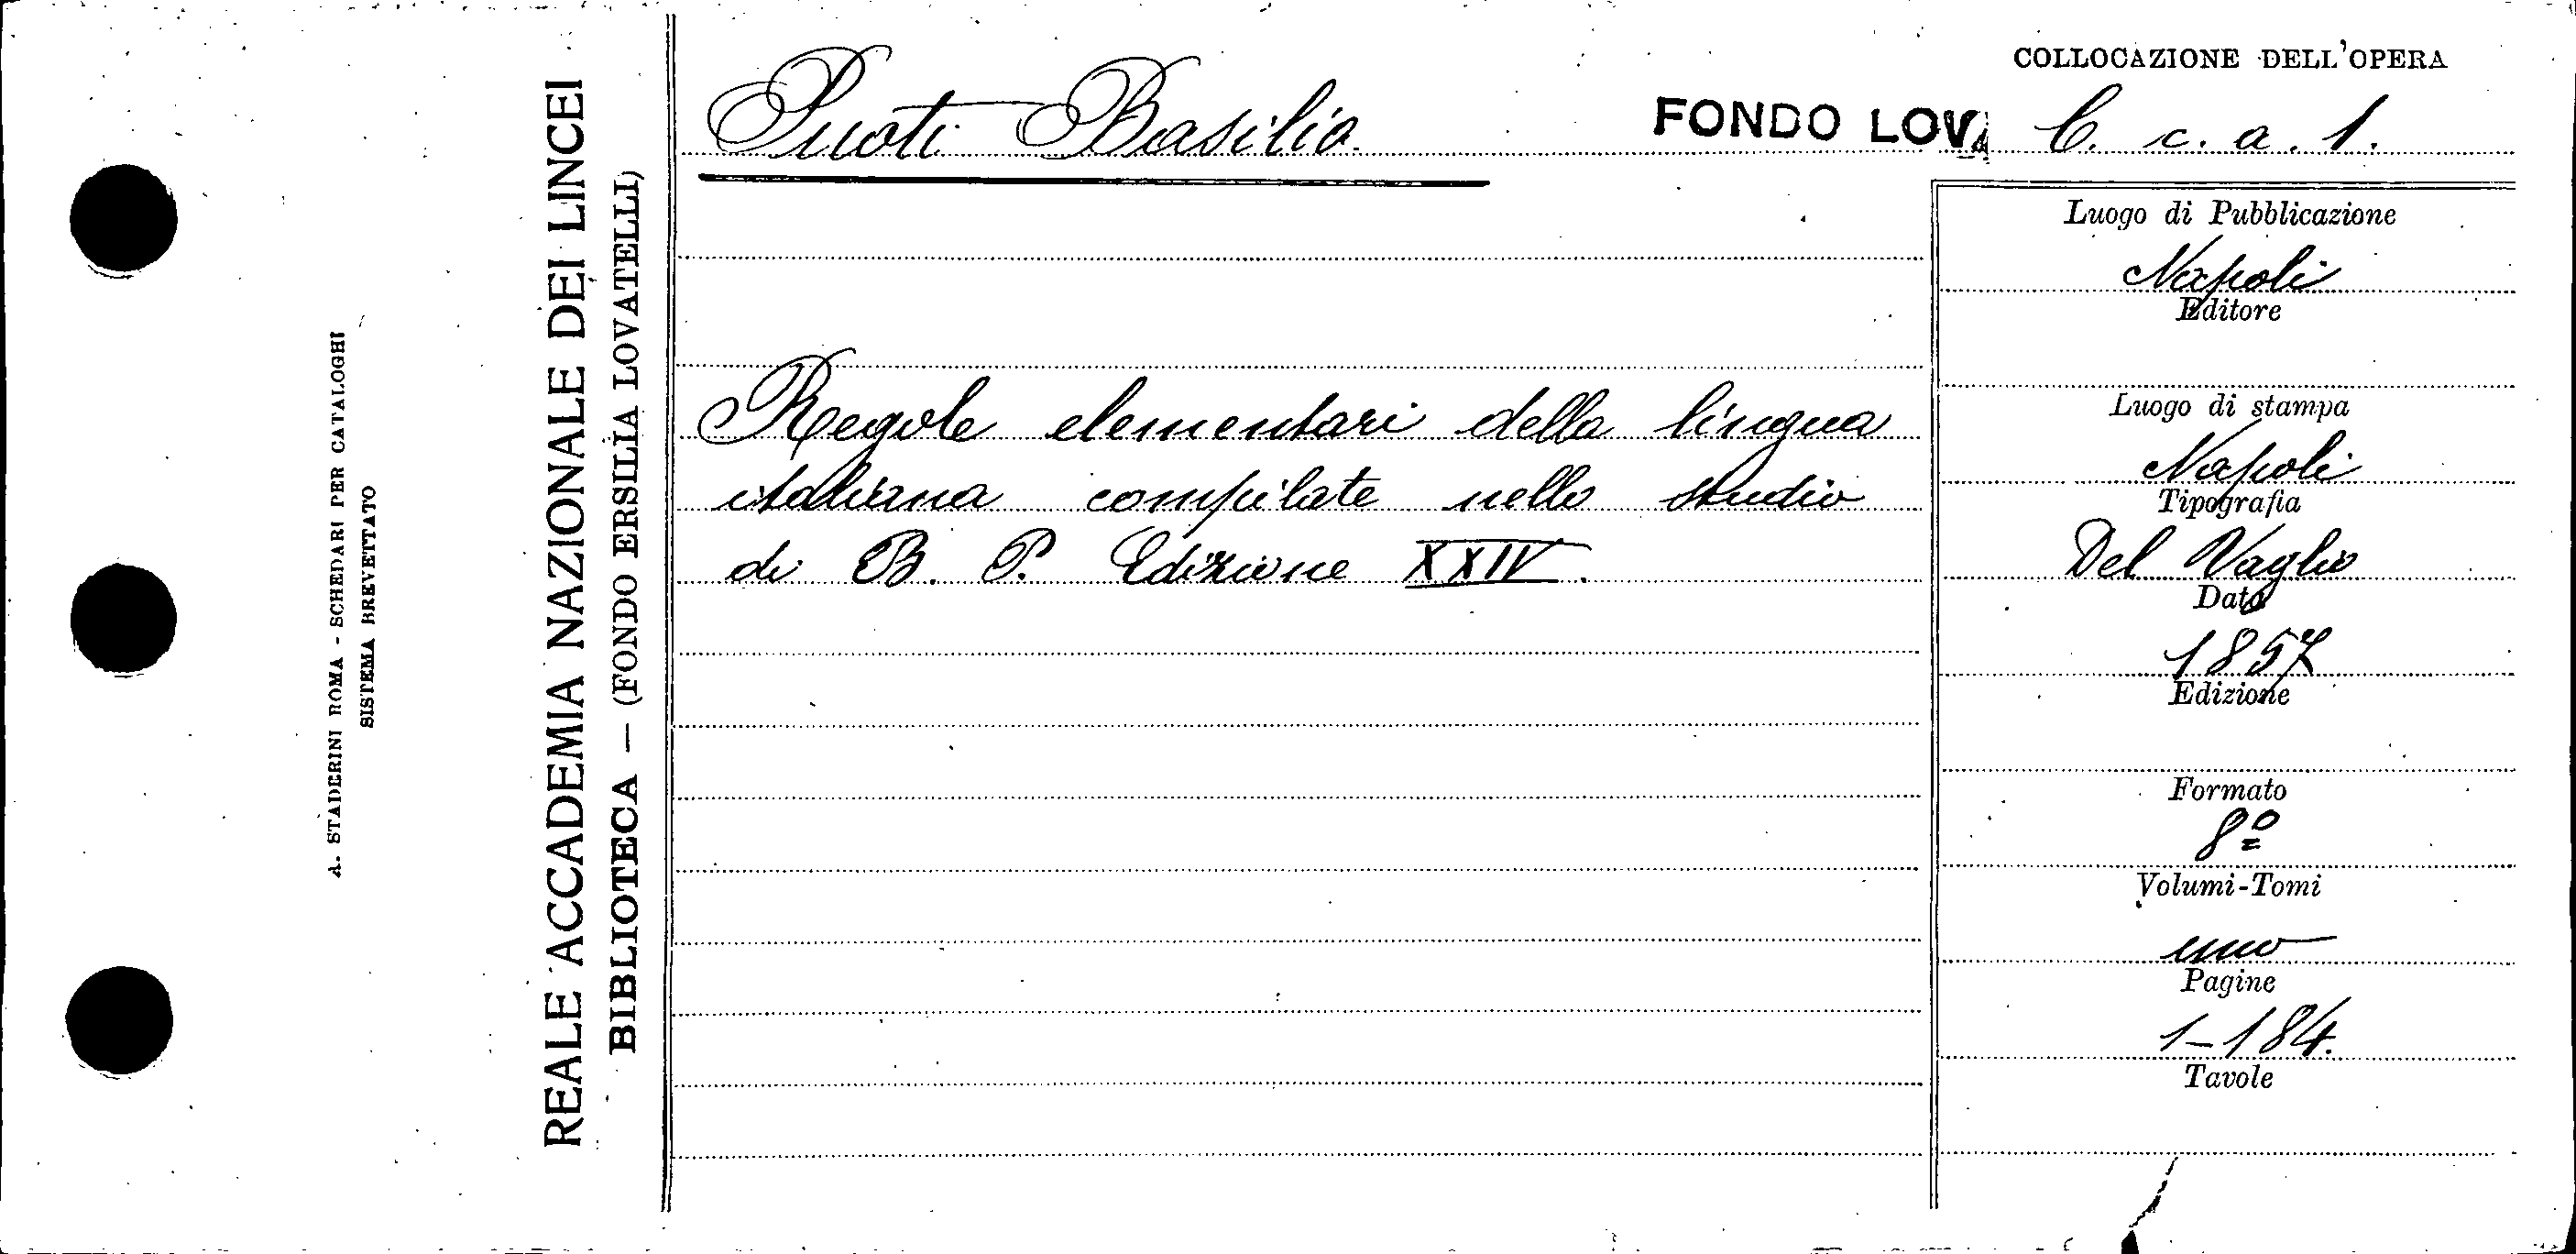 A. STADERINI ROMA - SCHEDARI PER CATALOGHI
SISTEMA BREVETTATO
REALE ACCADEMIA NAZIONALE DEI LINCEI
BIBLIOTECA — (FONDO ERSILIA LOVATELLI)
Puoti Basilio
Regole elementari della lingua
italiana compilate nello studio
di B. P. Edizione XXIV.
COLLOCAZIONE DELL'OPERA
FONDO LOVA C. c. a. 1.
Luogo di Pubblicazione
Napoli
Editore
Luogo di stampa
Napoli
Tipografia
Del Vaglio
Data
1857
Edizione
Formato
8º
Volumi-Tomi
uno
Pagine
1-184.
Tavole